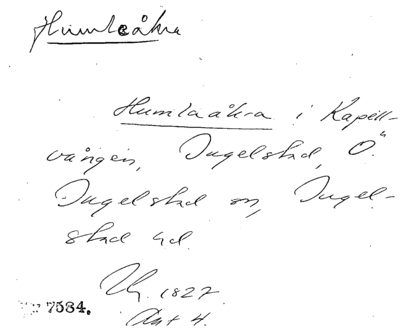 Humleåkra
Humlaåkra i Kapell-
vången, Ingelstad, Ö.
Ingelstad sn, Ingel-
stad hd.
1827
Akt 4.
7584.